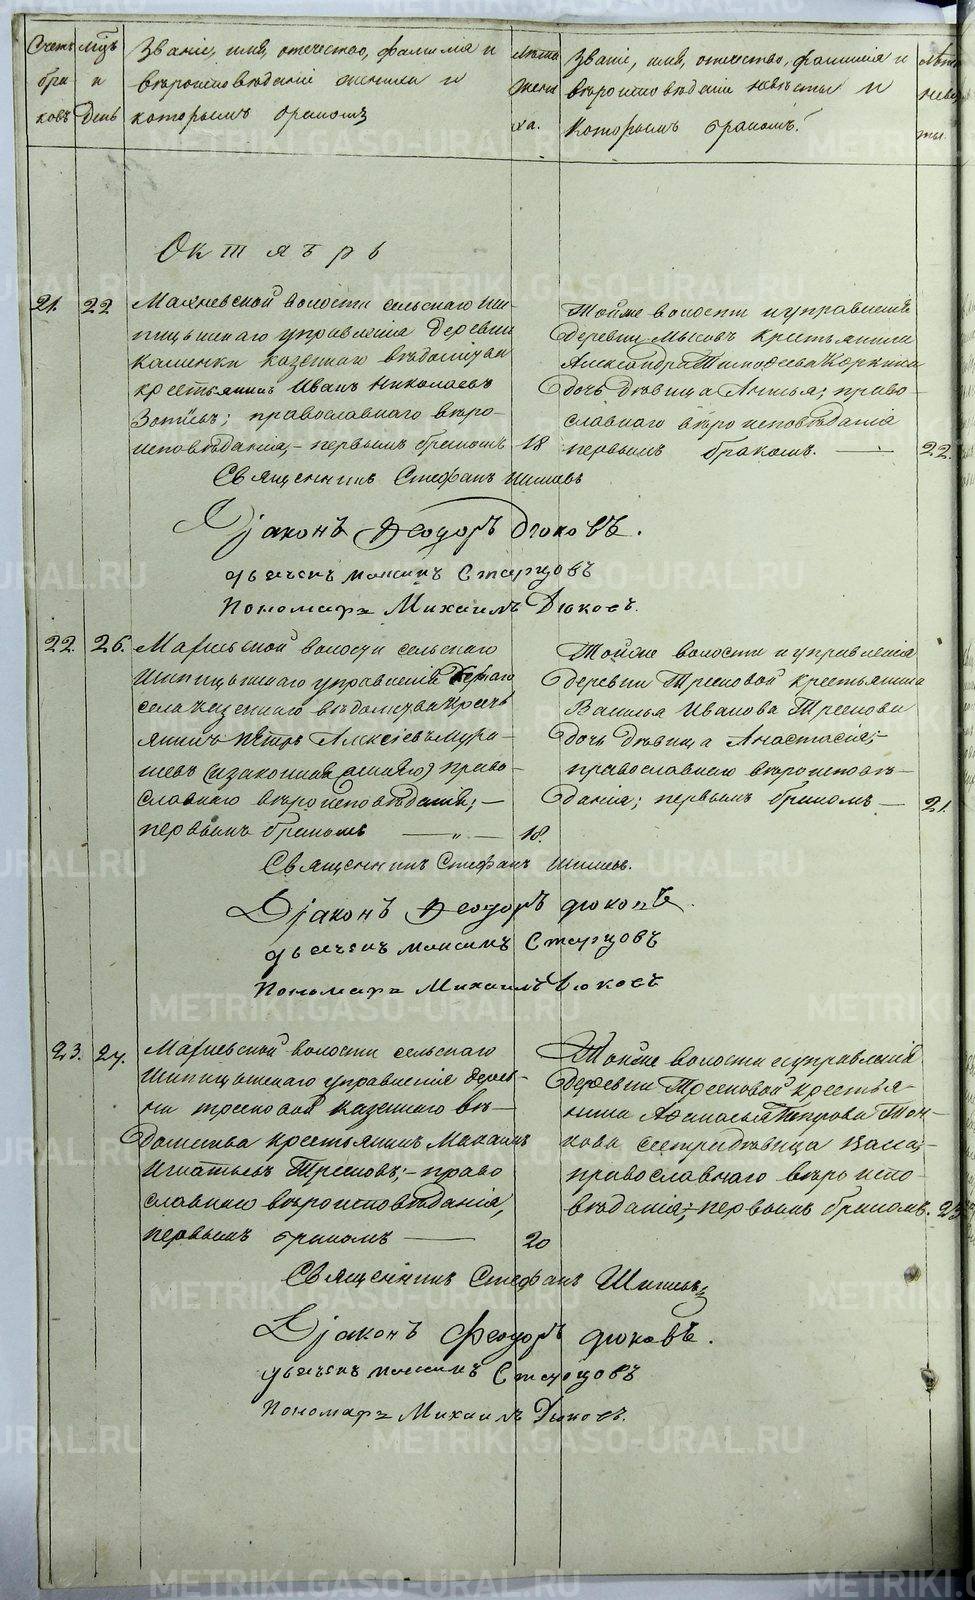 Счетъ браковъ
Мѣцъ и День
Званіе, имя, отечество, фамилія и
вѣроисповѣданіе жениха и
которымъ бракомъ
Лѣта жениха.
Званіе, имя, отечество, фамилія и
вѣроисповѣданіе невѣсты и
которымъ бракомъ.
Лѣта невѣсты.
Октябрь
21.
22
Махневской волости сельскаго Ши-
пицынскаго управленія деревни
казеннаго вѣдомства
крестьянинъ Иванъ Николаевъ
Зотѣевъ; православнаго вѣро-
исповѣданія,- первымъ бракомъ
18
Тойже волости и управленія
деревни Мысовъ крестьянина
Александра Тимофеева Коркина
дочь дѣвица Анисья; право-
славнаго вѣроисповѣданія
первымъ бракомъ. —
22.
Священникъ Стефанъ Шишевъ
Діаконъ Феодоръ Дюковъ.
дьячекъ Максимъ Старцовъ
Пономарь Михаилъ Дюковъ.
22.
26.
волости сельскаго
Шипицынскаго управленія
села казеннаго вѣдомства кресть
янинъ Петръ Алексѣевъ
(незаконно) право-
славнаго вѣроисповѣданія; —
первымъ бракомъ — „ —
18.
Тойже волости и управленія
деревни Тресковой крестьянина
Василья Иванова Трескова
дочь дѣвица Анастасія;-
православнаго вѣроисповѣ-
данія; первымъ бракомъ —
21.
Священникъ Стефанъ Шишевъ.
Діаконъ Феодоръ Дюковъ.
дьячекъ Максимъ Старцовъ
Пономарь Михаилъ Дюковъ
23.
27.
волости сельскаго
Шипицынскаго управленія дерев-
ни Трескова казеннаго вѣ-
домства крестьянинъ
Игнатьевъ Тресковъ;- право
славнаго вѣроисповѣданія,
первымъ бракомъ —
20
Тойже волости и управленія
деревни Трескововой крестья-
нина
сестра дѣвица
православнаго вѣроиспо-
вѣданія;- первымъ бракомъ.
Священникъ Стефанъ Шишевъ
Діаконъ Феодоръ Дюковъ.
дьячекъ Максимъ Старцовъ
Пономарь Михаилъ Дюковъ.
METRIKI.GASO-URAL.RU